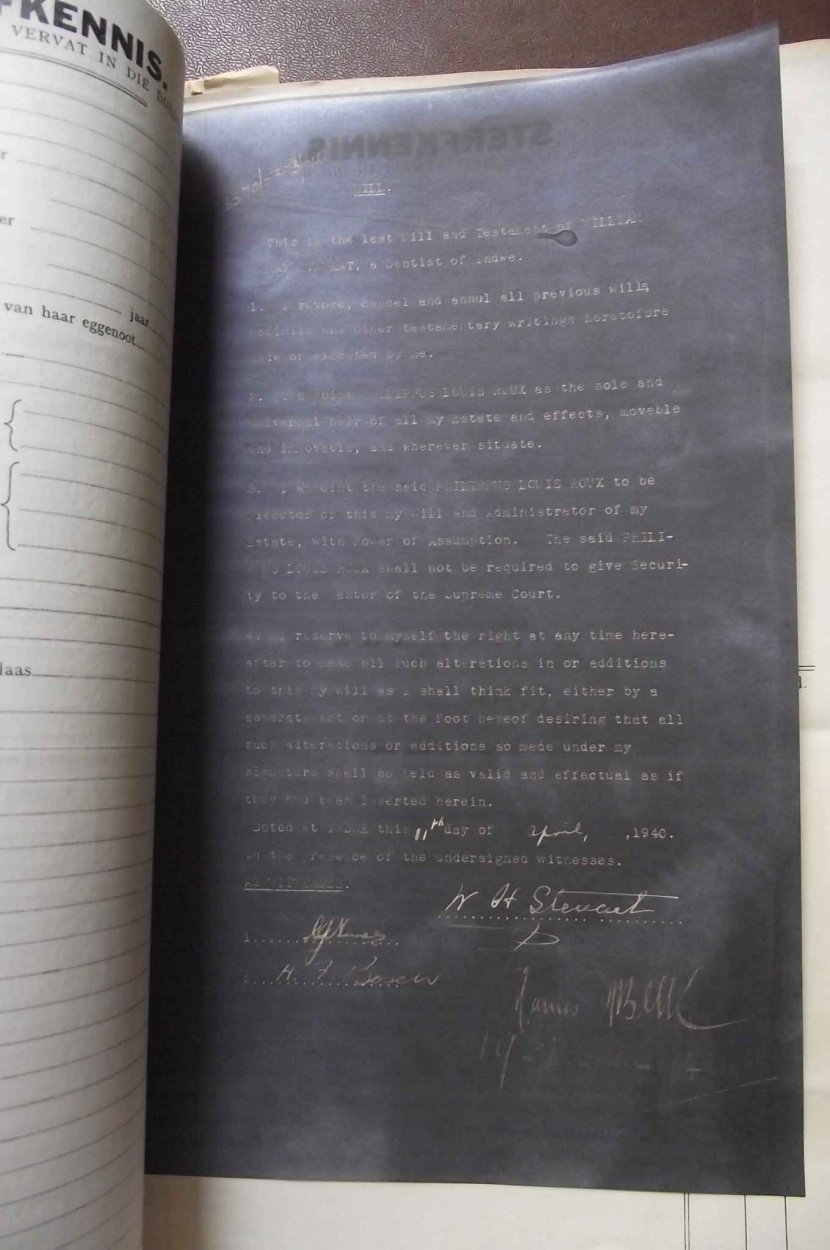 FKENNIS.
VERVAT IN DIE
er
van haar eggenoot
jaar
laas
STERFKENNIS
WILL.
This is the last Will and Testament of WILLIA
a Dentist of Indwe.
1. I revoke, cancel and annul all previous wills
codicils and other testamentary writings heretofore
made or executed by me.
2. I appoint PHILIPPUS LOUIS ROUX as the sole and
universal heir of all my Estate and effects, movable
and immovable, and wherever situate.
3. I appoint the said PHILIPPUS LOUIS ROUX to be
Executor of this my Will and Administrator of my
Estate, with Power of Assumption. The said PHILI-
PPUS LOUIS ROUX shall not be required to give Securi-
ty to the Master of the Supreme Court.
4. I reserve to myself the right at any time here-
after to make all such alterations in or additions
to this my will as I shall think fit, either by a
separate act or at the foot hereof desiring that all
such alterations or additions so made under my
signature shall be held as valid and effectual as if
they had been inserted herein.
Dated at INDWE this 11th day of April, ,1940.
In the presence of the undersigned witnesses.
AS WITNESSES.
W H Stewart
1.
2. H. F. Bosch
James